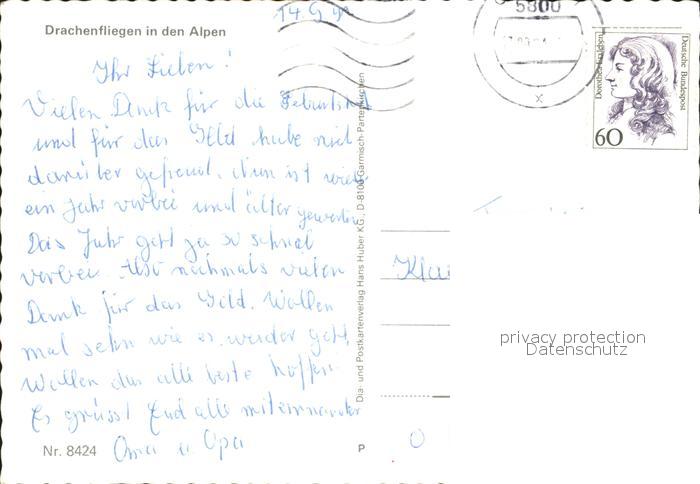 Drachenfliegen in den Alpen
14.9.
5300
Dorothea Erxleben
Deutsche Bundespost
60
Ihr Lieben!
Vielen Dank für die Geburtst
und für das Geld habe mich
darüber gefreut. Nun ist wieder
ein Jahr vorbei und älter geworden
Das Jahr geht ja so schnell
vorbei. Also nochmals vielen
Dank für das Geld. Wollen
mal sehn wie es weiter geht,
Wollen das alle beste hoffen
Es grüsst Euch alle miteinander
Oma u. Opa
Nr. 8424
Dia- und Postkartenverlag Hans Huber KG., D-8100 Garmisch-Partenkirchen
P
Klau
privacy protection
Datenschutz